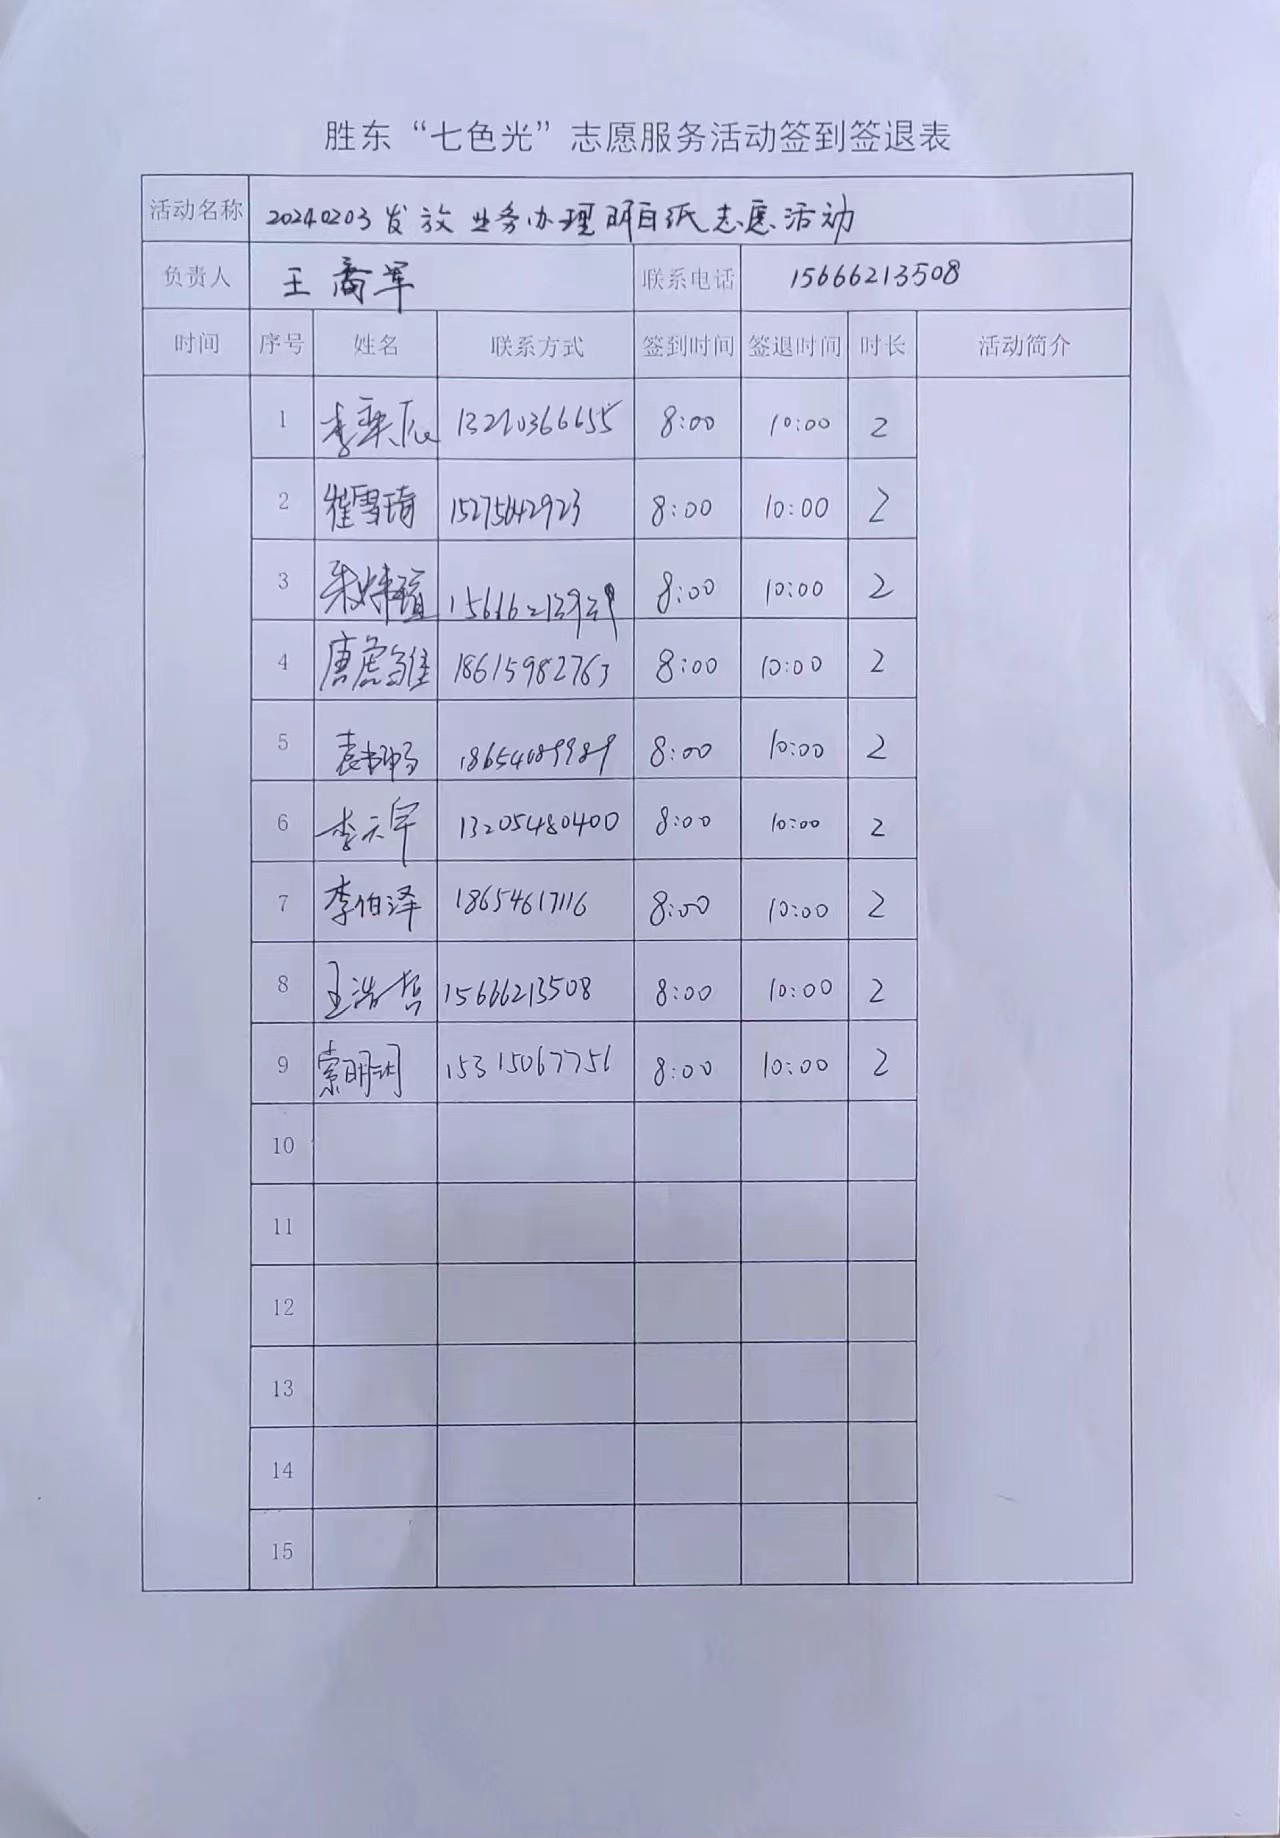 胜东“七色光”志愿服务活动签到签退表
活动名称 20240203发放业务办理明白纸志愿活动
负责人 王 军 联系电话 15666213508
时间 序号 姓名 联系方式 签到时间 签退时间 时长 活动简介
1 李 辰 13210366655 8:00 10:00 2
2 崔雪琦 15275642923 8:00 10:00 2
3 朱炜瑄 8:00 10:00 2
4 唐 18615982763 8:00 10:00 2
5 袁 18654089989 8:00 10:00 2
6 李天宇 13205480400 8:00 10:00 2
7 李伯泽 18654617116 8:00 10:00 2
8 王浩哲 15666213508 8:00 10:00 2
9 索明玥 15315067756 8:00 10:00 2
10
11
12
13
14
15